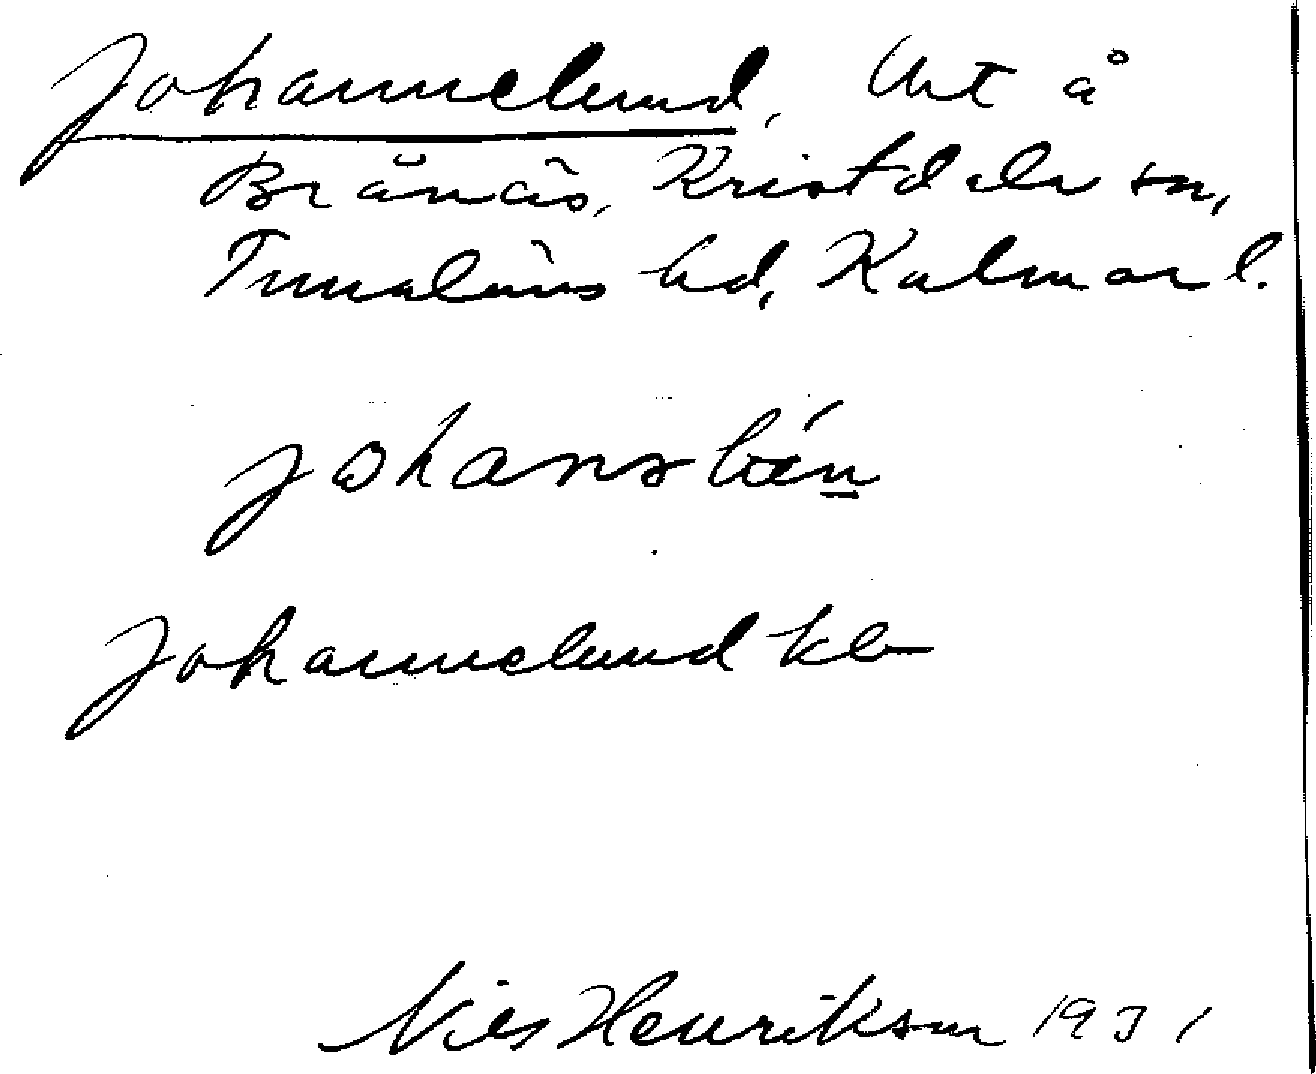 Johannelund, Urt å
Brånäs, Kristdala sn,
Tunaläns hd, Kalmar l.
Johannelund kb
Nils Henrikson 1931